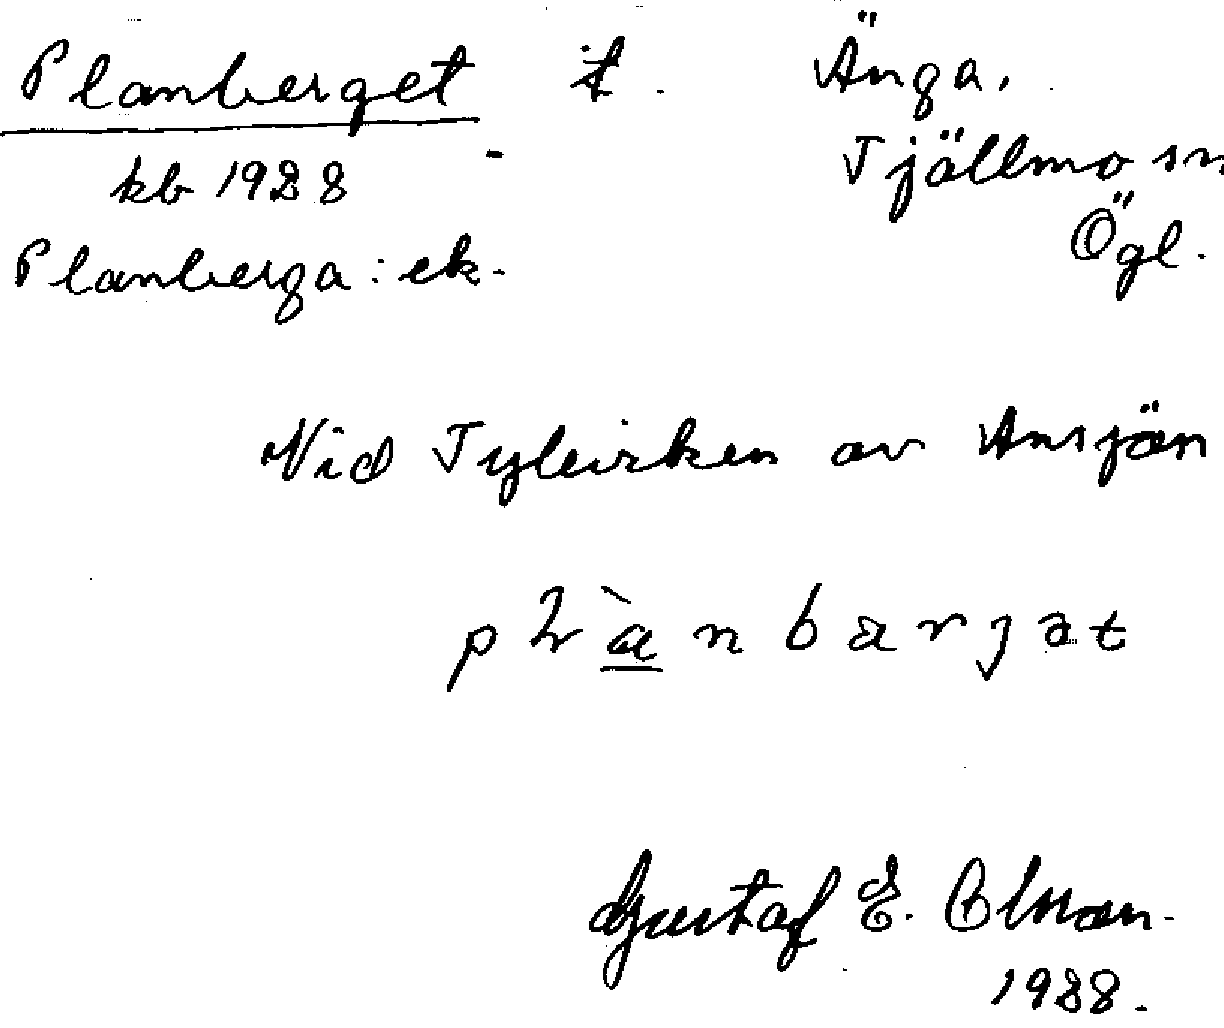 Planberget t. Änga.
kb 1928 - Tjällmo sn
Ögl.
Planberga: ek.
Vid av Ansjön
plànbærjət
Gustaf E. Olsson.
1928.